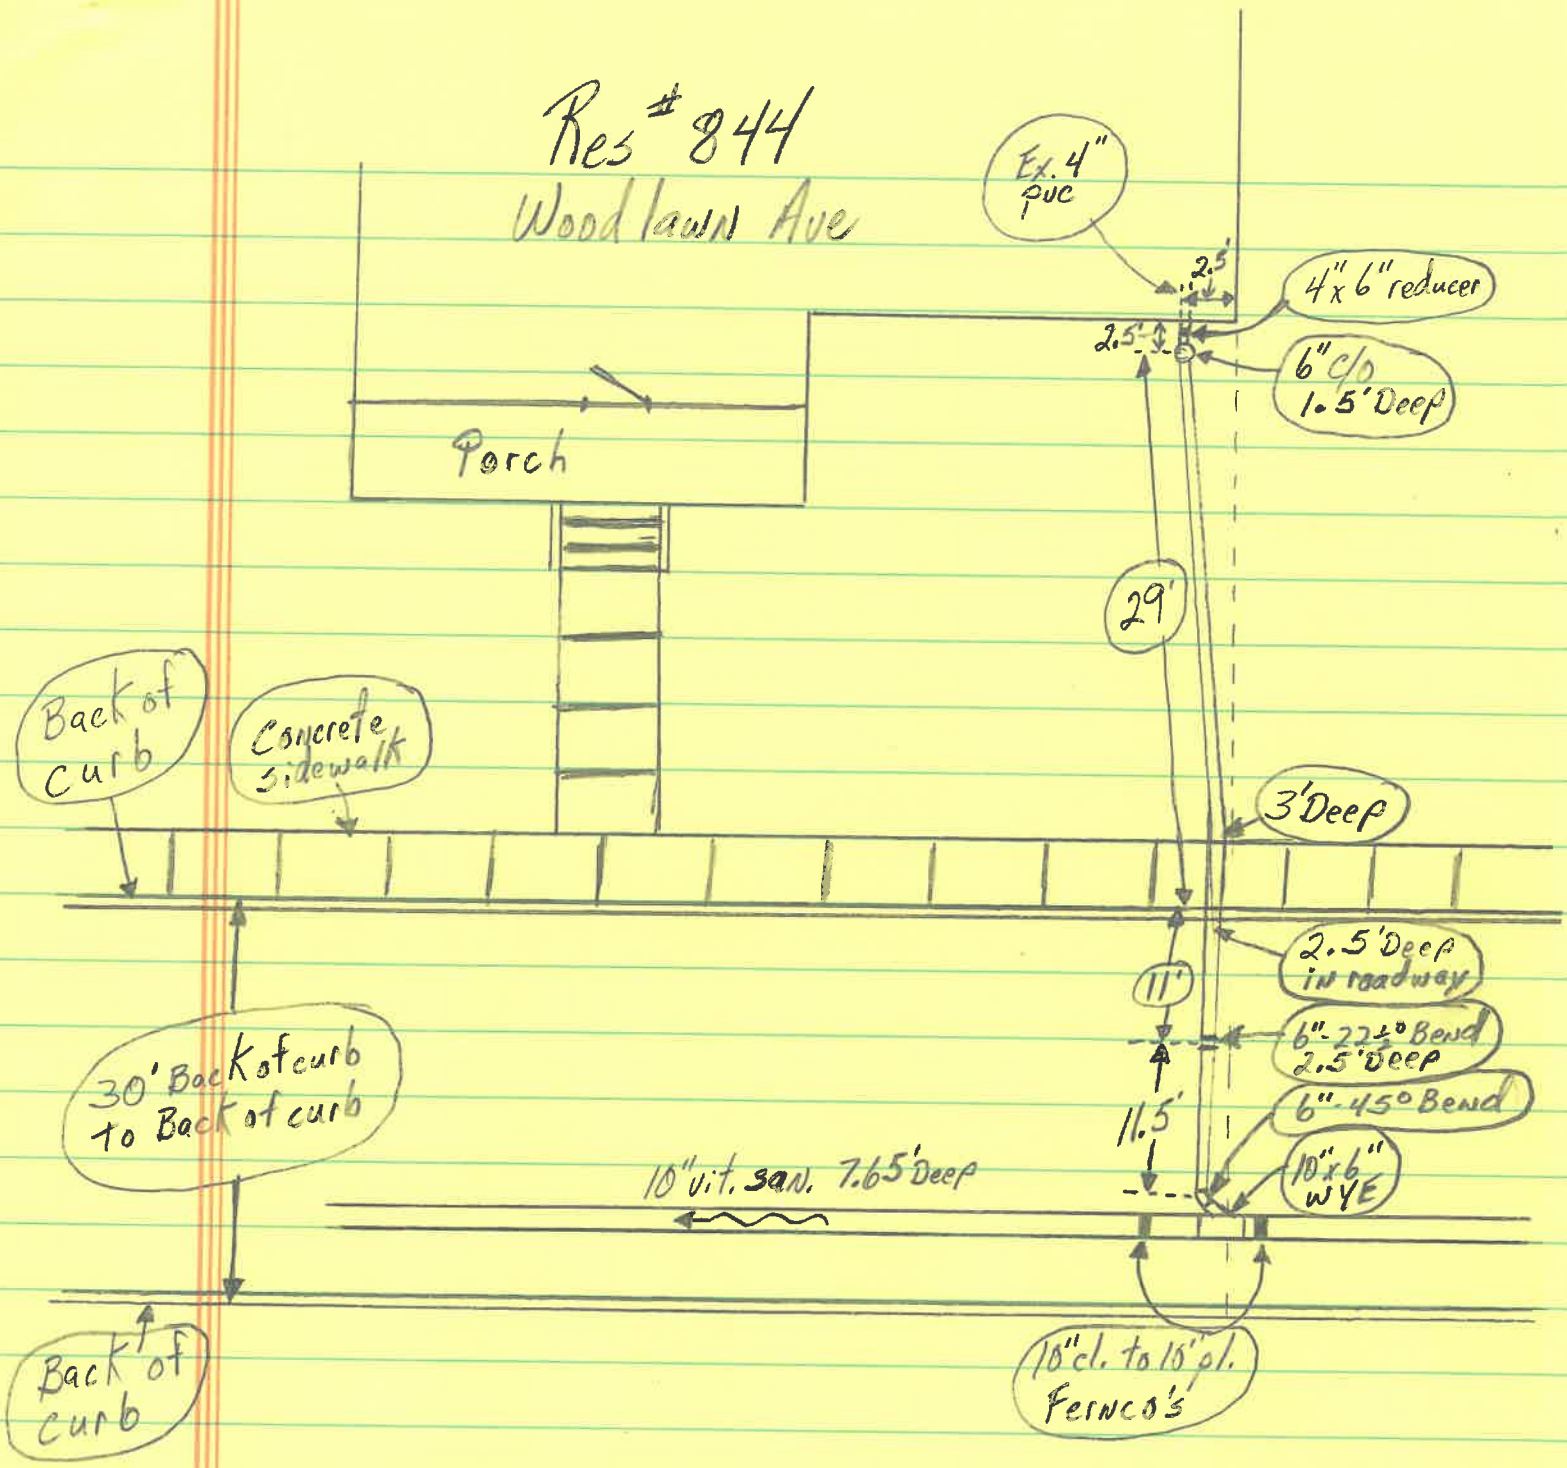 Res # 844
Woodlawn Ave
Ex. 4"
pvc
2.5'
4" x 6" reducer
2.5'
6" c/o
1.5' Deep
Porch
29'
Back of
curb
Concrete
sidewalk
3' Deep
2.5' Deep
in roadway
11'
6"-22½° Bend
2.5' Deep
30' Back of curb
to Back of curb
6"-45° Bend
11.5'
10" vit. san. 7.65' Deep
10" x 6"
WYE
Back of
curb
10" cl. to 10" pl.
Fernco's